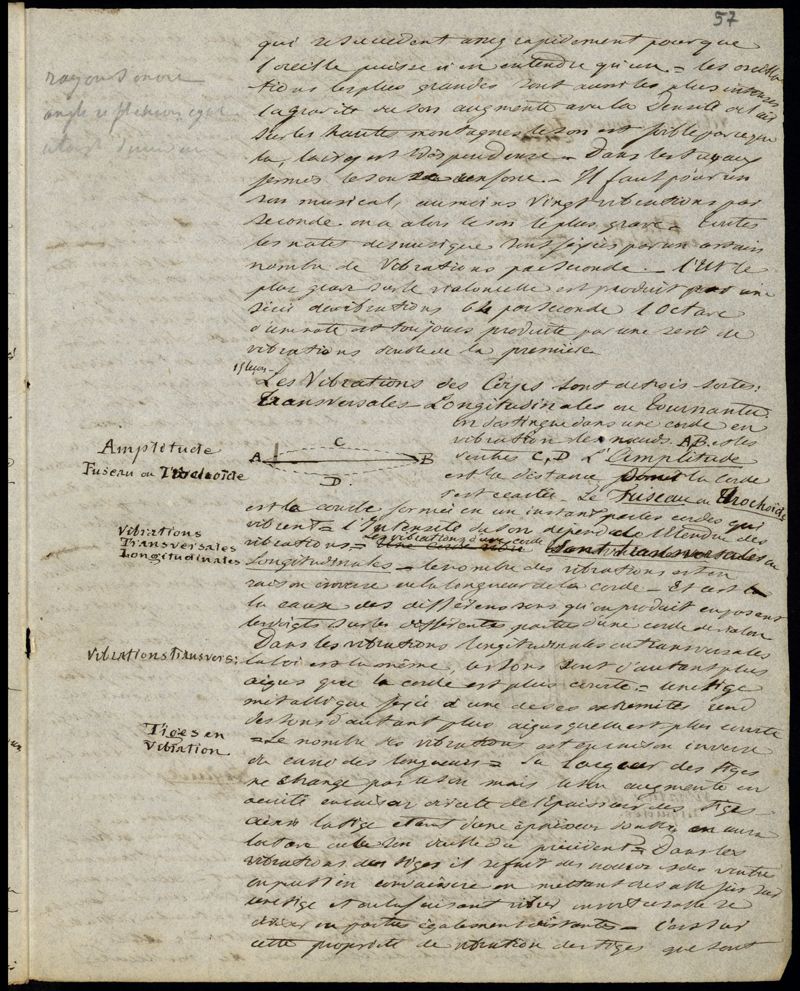 57
qui se succèdent assez rapidement pour que
l'oreille puisse n'en entendre qu'un = les oscilla
tions les plus grandes sont aussi les plus intenses
la gravité du son augmente avec la densité de l'air
sur les hautes montagnes le son est faible parceque
là, l'air y est très peu dense = Dans les tuyaux
fermés le son se renforce. = Il faut pour un
son musical, au moins vingt vibrations par
seconde on a alors le son le plus grave = toutes
les notes de musique sont fixées par un certain
nombre de vibrations par seconde. = l'Ut le
plus grave sur le violoncelle est produit par une
série de vibrations 64 par seconde l'Octave
d'une note est toujours produite par une série de
vibrations double de la première
rayon sonore
angle réflexion égal
15 leçon
Les Vibrations des Corps sont de trois sortes:
Transversales Longitudinales ou Tournantes.
On distingue dans une corde en
vibration des nœuds A,B et les
ventres C, D L'Amplitude
est la distance dont la corde
s'est écartée. Le Fuseau ou Trochoïde
Amplitude
Fuseau ou Trochoïde
A B C D
est la courbe formée en un instant par les cordes qui
vibrent = l'Intensité du son dépend de l'étendue des
vibrations = les vibrations d'une corde sont transversales ou
Longitudinales = le nombre des vibrations est en
raison inverse de la longueur de la corde = Et c'est
la cause des différens sons qu'on produit en posant
les doigts sur les différentes parties d'une corde de violon
Vibrations
Transversales
Longitudinales
Dans les vibrations longitudinales ou transversales
la loi est la même, les sons sont d'autant plus
aigus que la corde est plus courte = une tige
métallique fixée d'une de ses extrémités rend
des sons d'autant plus aigus qu'elle est plus courte
= Le nombre des vibrations est en raison inverse
du carré des longueurs = La largeur des tiges
ne change pas le son mais le son augmente en
acuité en raison directe de l'épaisseur des tiges
ainsi la tige étant d'une épaisseur double, on aura
Vibrations Transvers:
Tiges en
Vibration
précédent = Dans les
vibrations des tiges il se fait des nœuds et des ventres
on peut s'en convaincre en mettant du sable fin sur
une tige et en la faisant vibrer on voit ce sable se
diviser en parties également distantes = C'est sur
cette propriété de vibration des tiges que sont